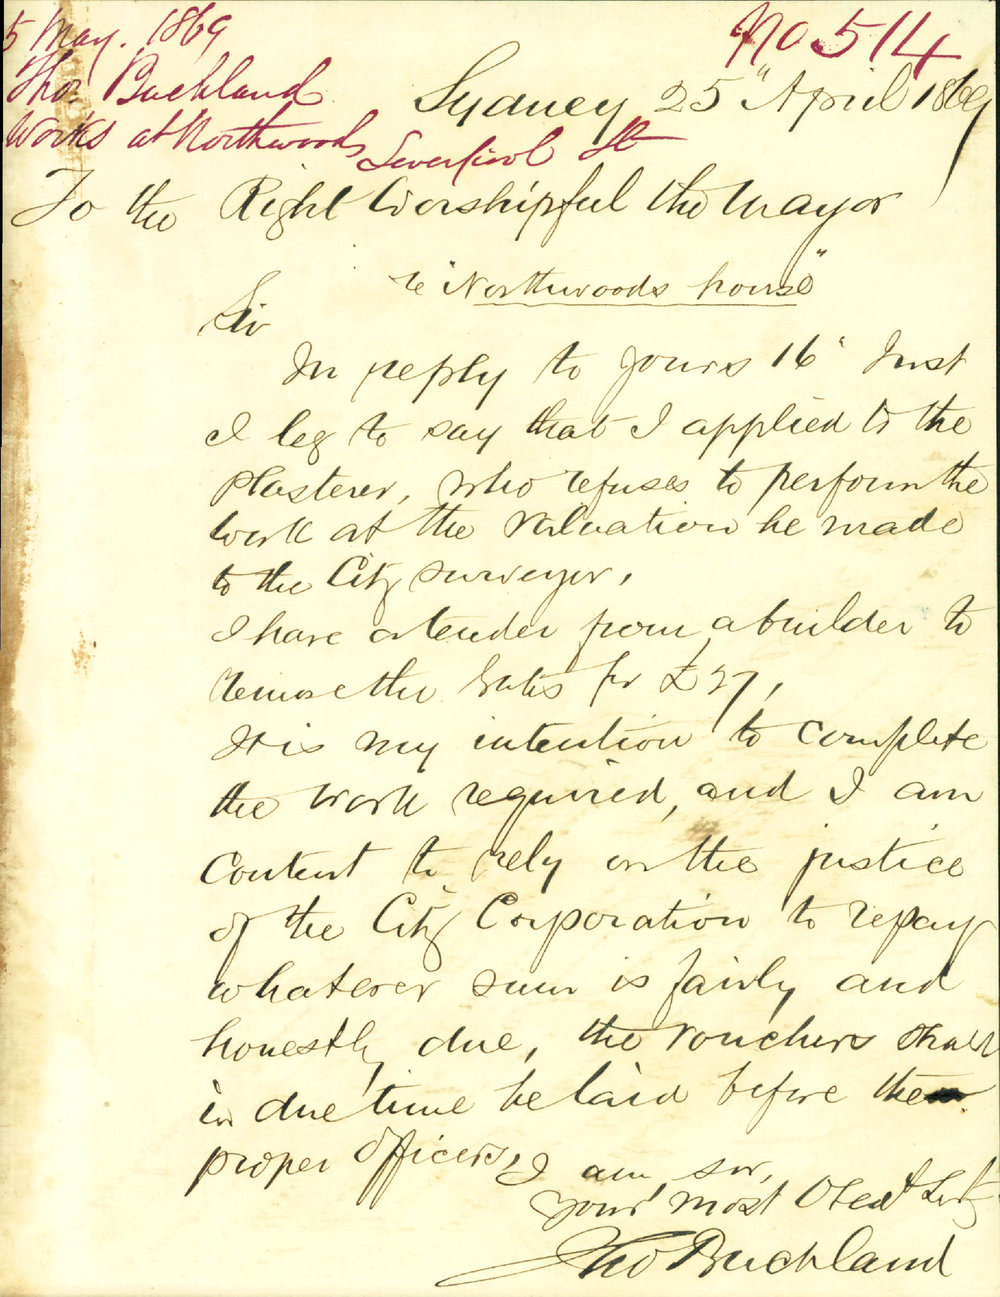 5 May. 1869
No 514
Thos. Buckland
Works at Northwoods
Liverpool St
Sydney 25" April 1869
To the Right Worshipful the Mayor
re "Northwoods house"
Sir
In reply to yours 16" Inst
I beg to say that I applied to the
plasterer, who refuses to perform the
work at the valuation he made
to the City surveyor,
I have a tender from a builder to
remove the Gates for £27,
It is my intention to complete
the work required, and I am
content to rely on the justice
of the City Corporation to repay
whatever sum is fairly and
honestly due, the vouchers shall
in due time be laid before the
proper officers, I am, sir,
your most Obedt Servt
Tho Buckland